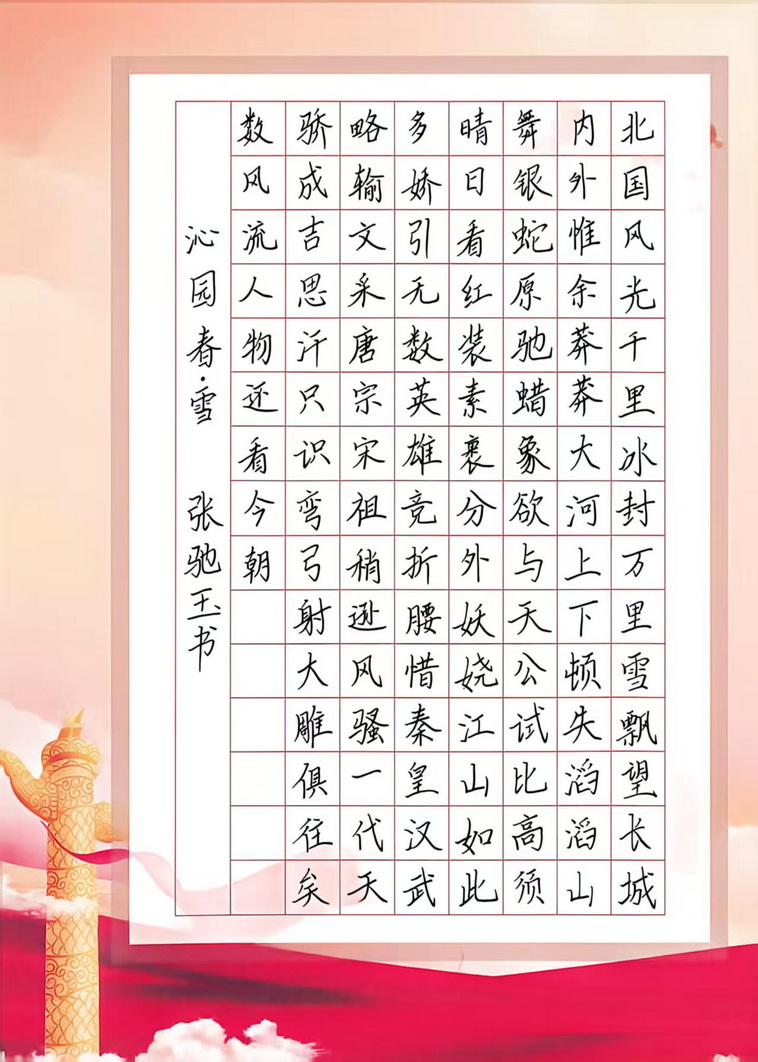 北国风光千里冰封万里雪飘望长城
内外惟余莽莽大河上下顿失滔滔山
舞银蛇原驰蜡象欲与天公试比高须
晴日看红装素裹分外妖娆江山如此
多娇引无数英雄竞折腰惜秦皇汉武
略输文采唐宗宋祖稍逊风骚一代天
骄成吉思汗只识弯弓射大雕俱往矣
数风流人物还看今朝
沁园春·雪 张驰玉书